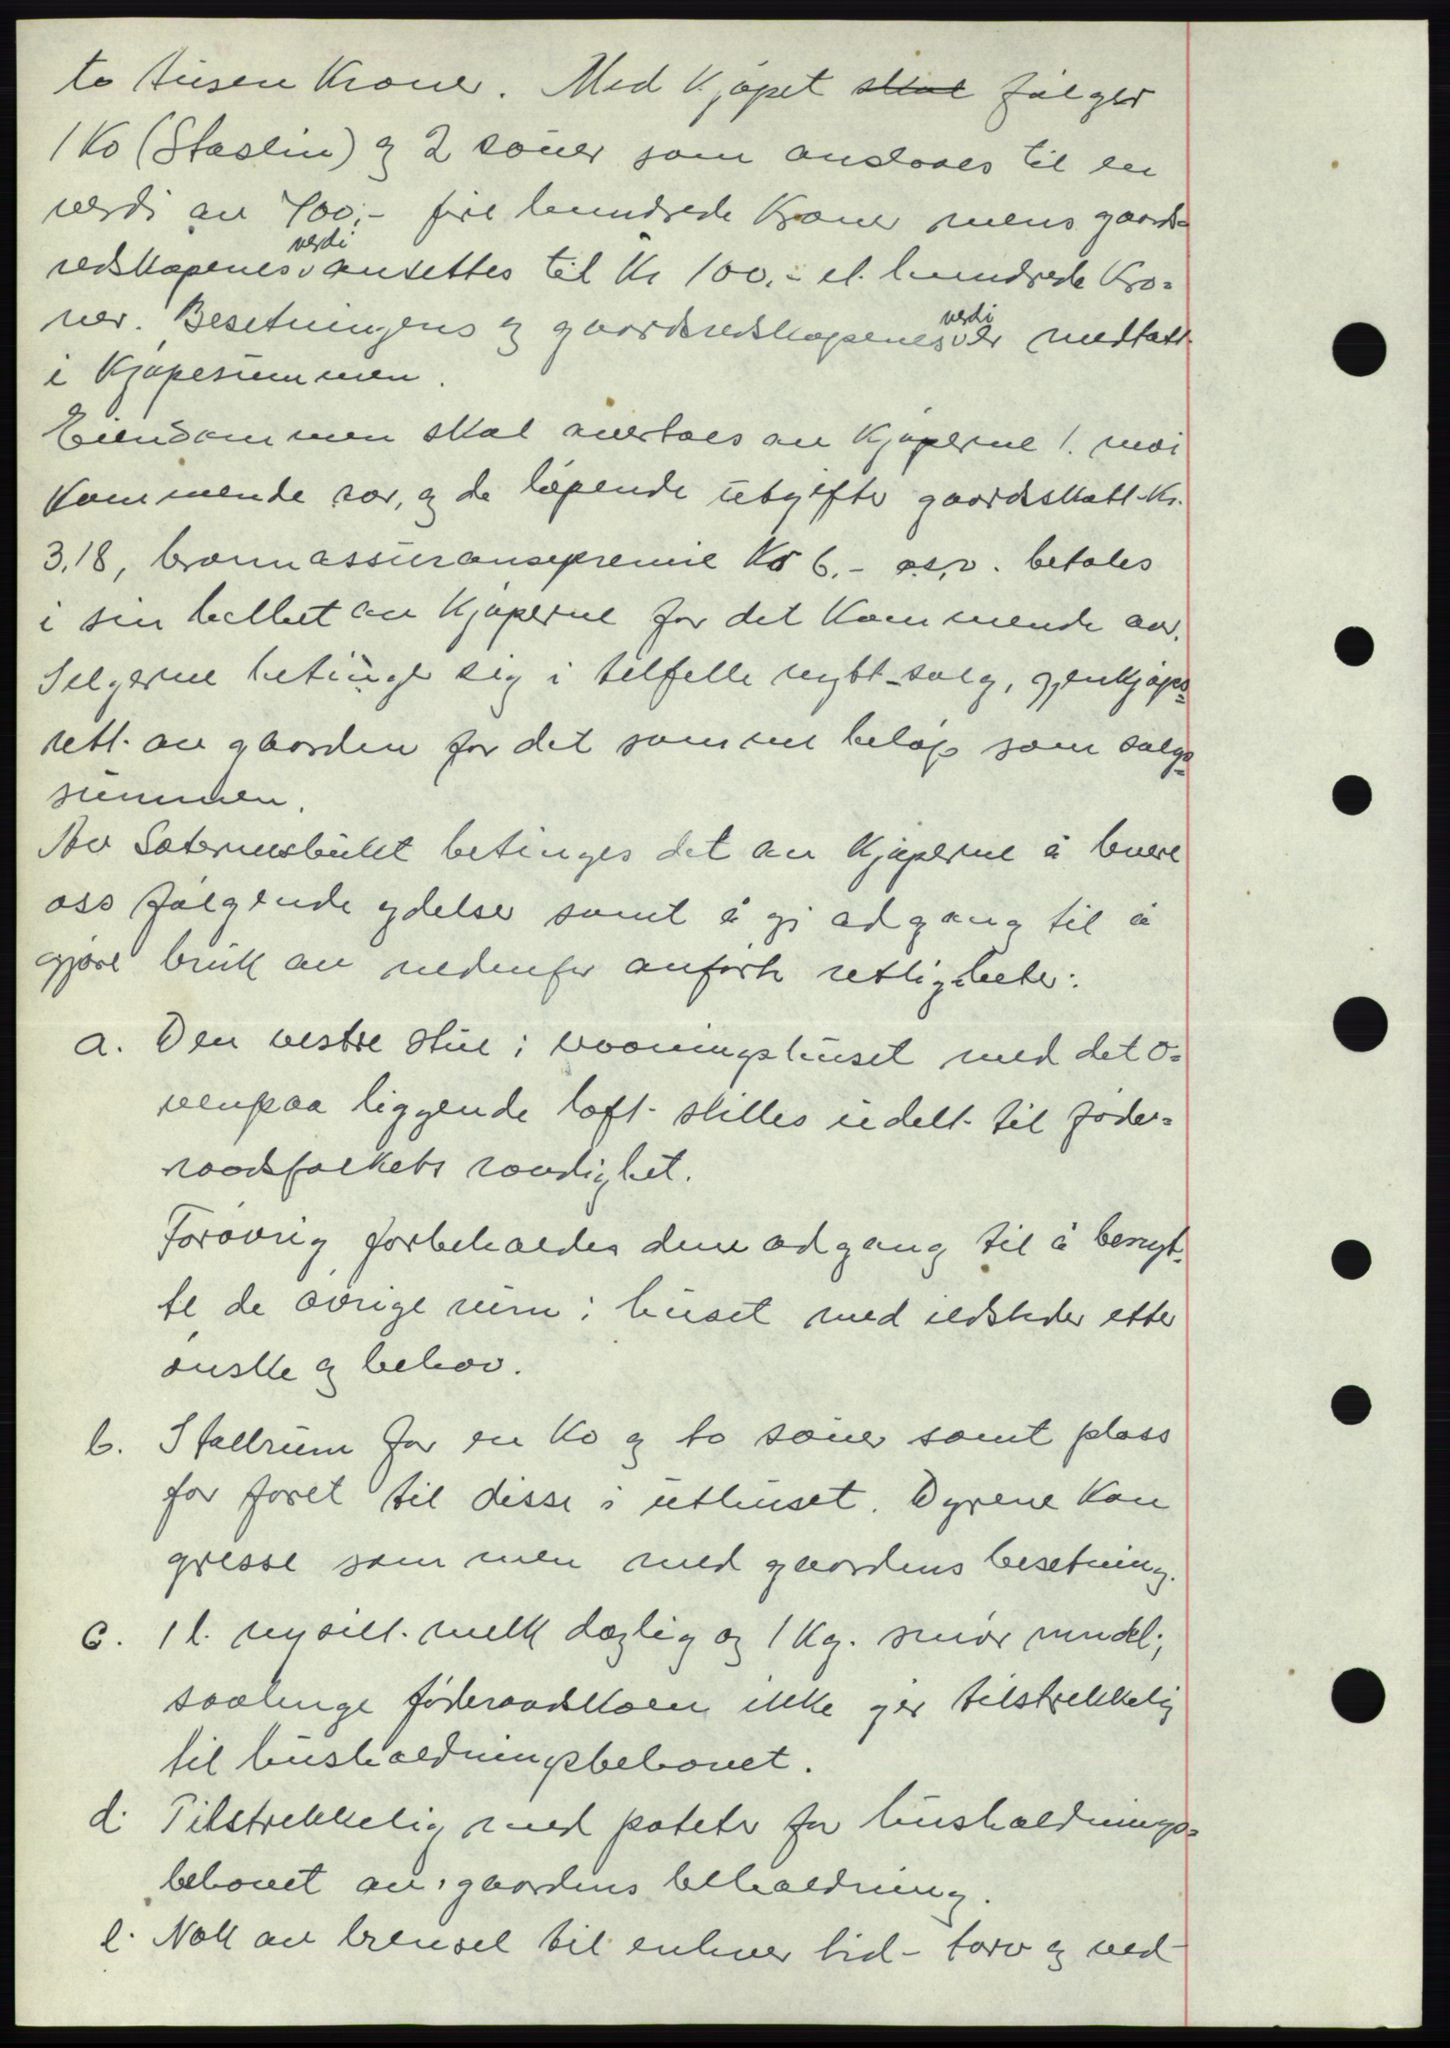 to tusen kroner. Med kjøpet skal følger
1 ko (Staslin) og 2 sauer som anslaaes til en
verdi av 400,- fire hundrede kroner mens gaards-
redskapenes verdi ansettes til kr 100.- et hundrede kro-
ner. Besetningens og gaardsredskapenes verdi er medtatt
i kjøpesummen.
Eiendommen skal overtaes av kjøperne 1. mai
kommende aar, og de løpende utgifter gaardsskatt kr.
3,18, brannassuransepremie kr 6.- o.s.v. betales
i sin helhet av kjøperne for det kommende aar.
Selgerne betinger sig i tilfelle nytt salg, gjenkjøps-
rett av gaarden for det samme beløp som salgs-
summen.
Av bruket betinges det av kjøperne å levere
oss følgende ydelser samt å gi adgang til å
gjøre bruk av nedenfor anførte rettigheter:
a. Den vestre stue i vaaningshuset med det o-
venpaa liggende loft stilles udelt til føder-
raadsfolkets raadighet.
Forøvrig forbeholdes dem adgang til å benyt-
te de øvrige rum i huset med ildsteder etter
ønske og behov.
b. Stallrum for en ko og to sauer samt plass
for foret til disse i uthuset. Dyrene kan
gresse sammen med gaardens besetning.
c. 1 l. nysilt melk daglig og 1 kg. smør mndl.,
saalenge føderaadskoen ikke gir tilstrekkelig
til husholdningsbehovet.
d. Tilstrekkelig med poteter for husholdnings-
behovet av gaardens beholdning.
e. Nok av brensel til enhver tid - torv og ved